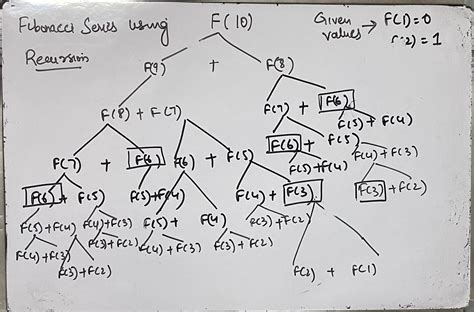 Fibonacci Series using F(10) Given values → F(1)=0
Recursion F(2)=1
F(9) + F(8)
F(8) + F(7) F(7) + F(6)
F(5) + F(4)
F(7) + F(6) F(6) + F(5) F(6) + F(5)
F(5)+F(4) F(4)+F(3)
F(6) + F(5) F(5)+F(4) F(4) + F(3) F(3) + F(2)
F(5)+F(4) F(4)+F(3) F(5) + F(4) F(3)+F(2)
F(4)+F(3) F(3)+F(2) F(4)+F(3) F(3)+F(2)
F(3)+F(2) F(2) + F(1)